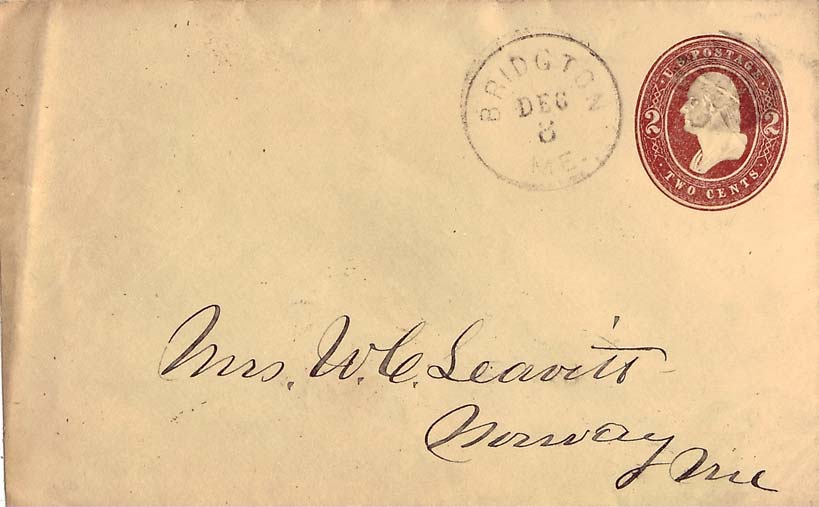 BRIDGTON
DEC
8
ME.
U.S. POSTAGE
2 2
TWO CENTS
Mrs. W. C. Leavitt
Norway Me